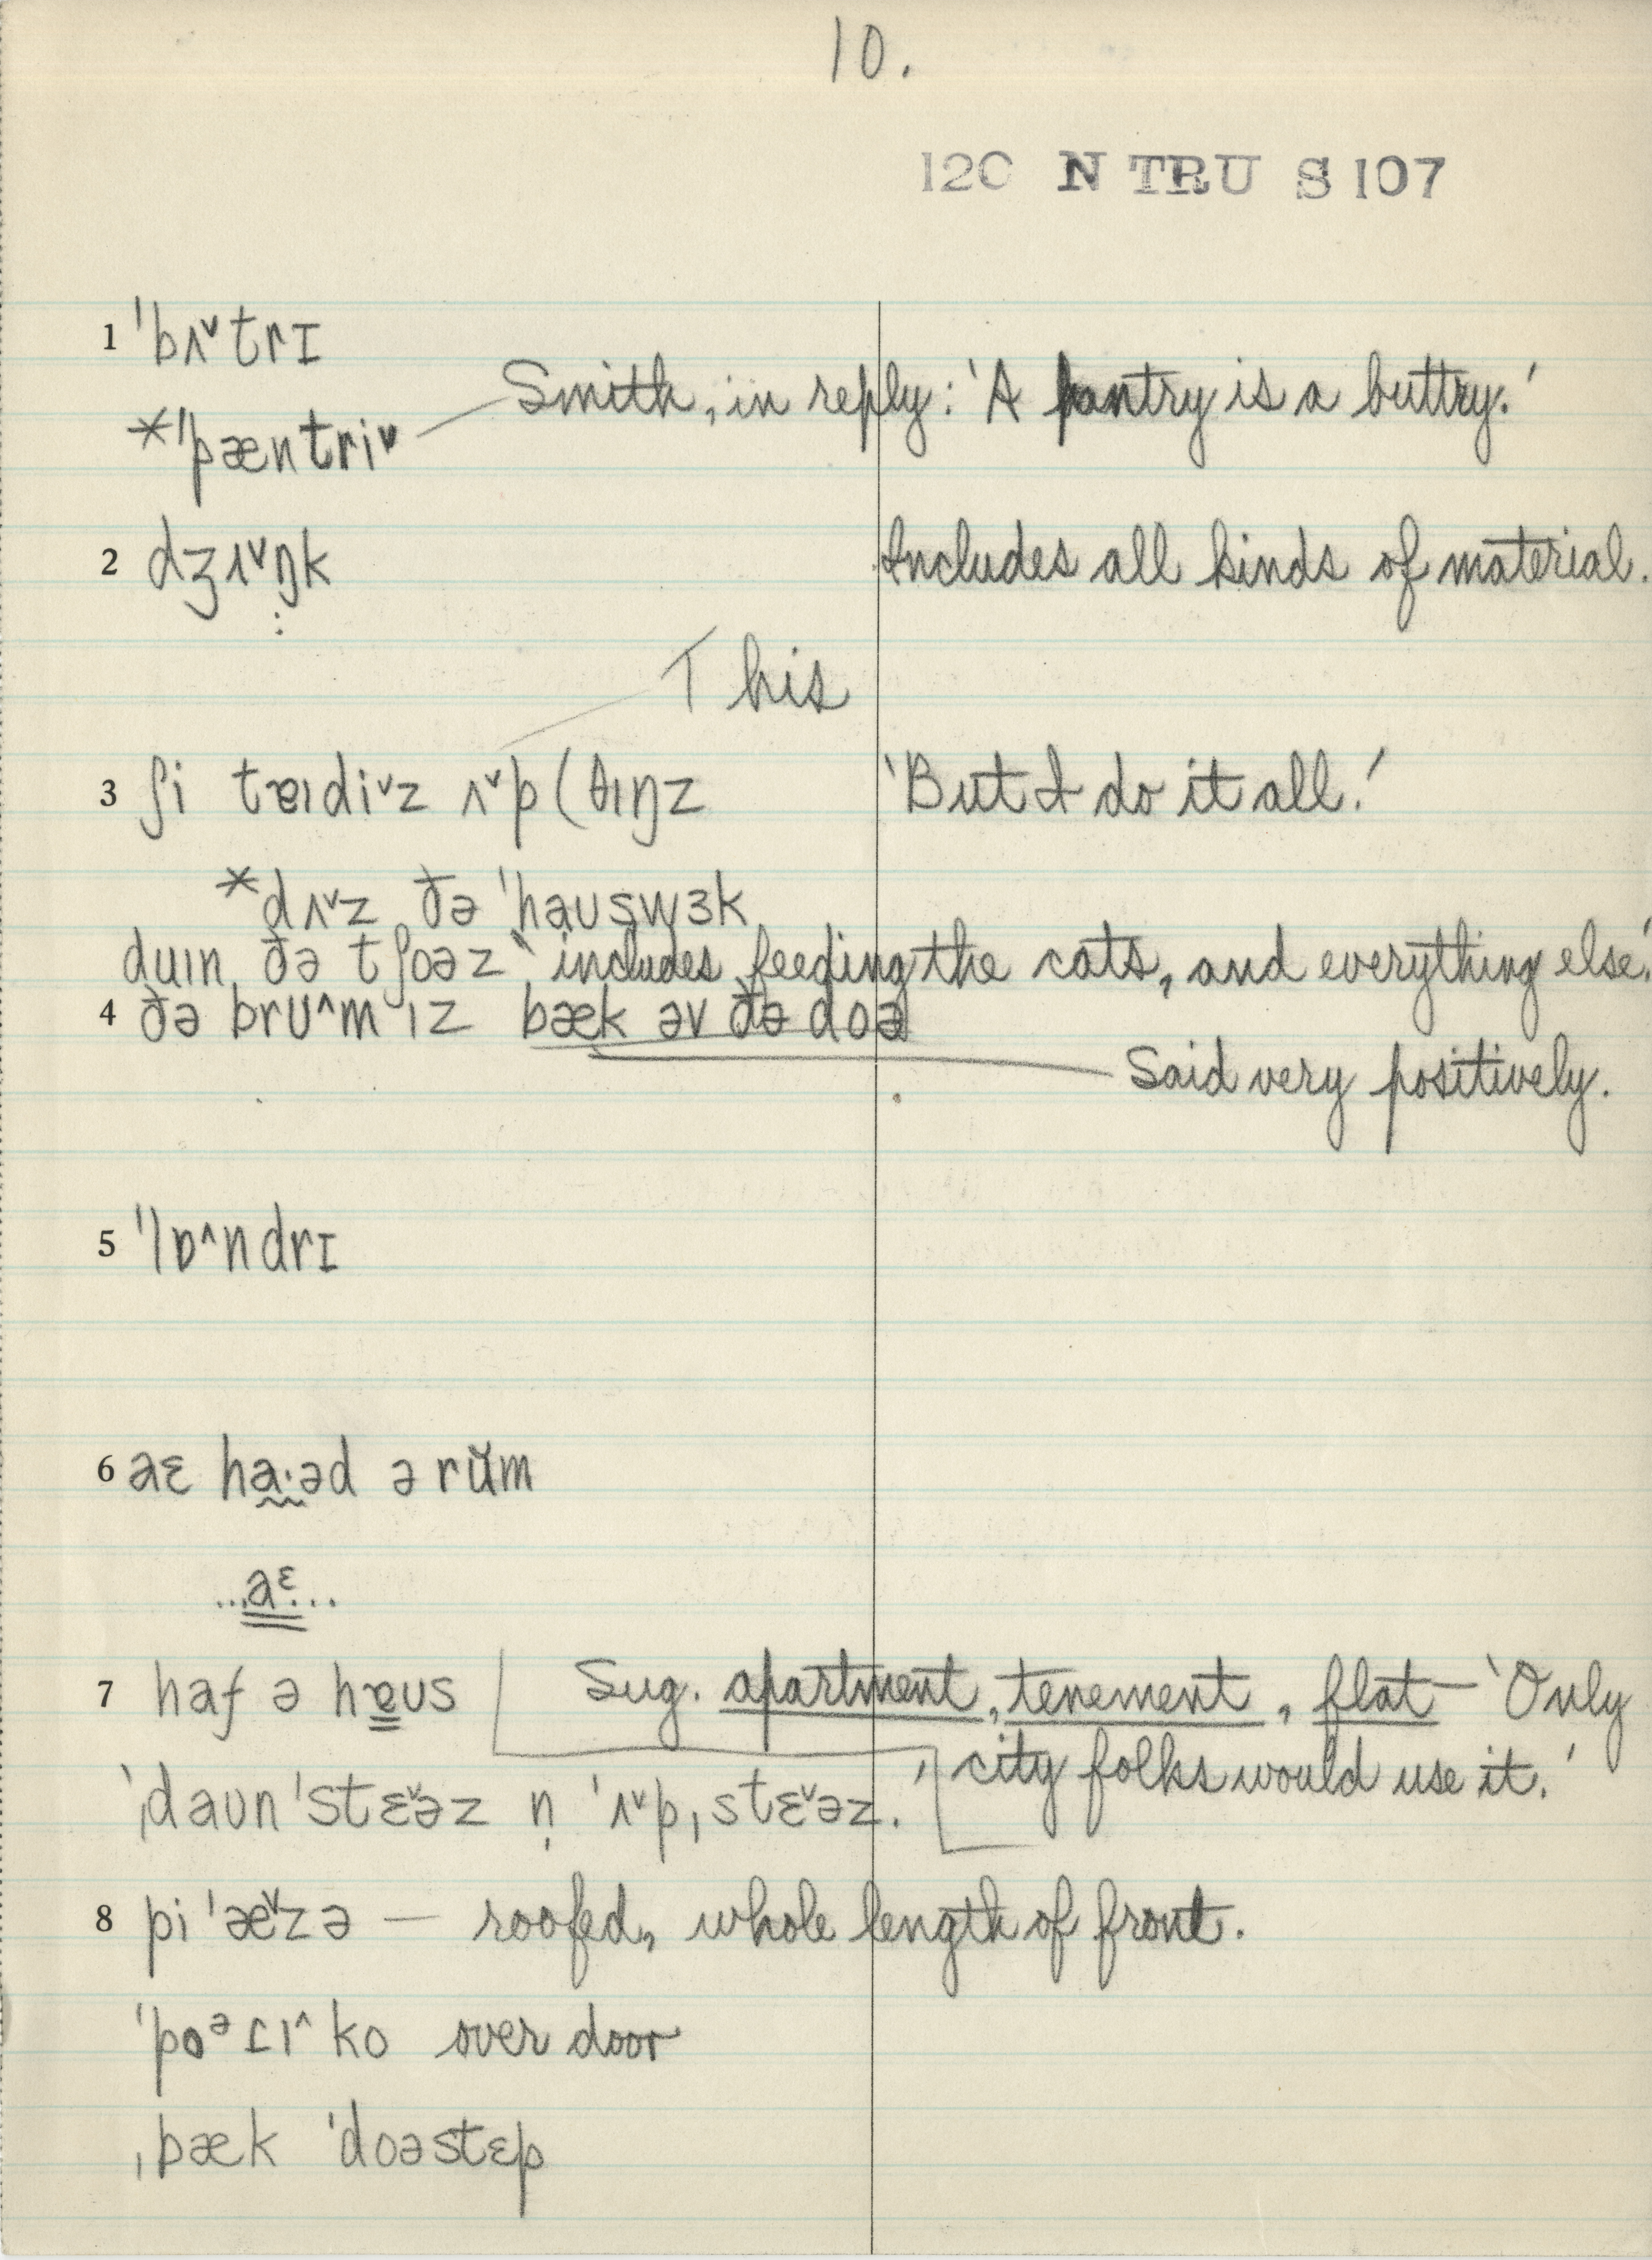 10.
120 N TRU S 107
1 ˈbʌ˅trɪ
Smith, in reply: 'A pantry is a buttry.'
*ˈpæntri˅
2 dʒʌ˅ŋk Includes all kinds of material.
This
3 ʃi tɐɪdi˅z ʌ˅p (θɪŋz 'But I do it all.'
*dʌ˅z ðə ˈhaʊswɜk
duɪn ðə tʃoəz 'includes feeding the cats, and everything else.'
4 ðə brʊ^m ɪz bæk əv ðə doə
Said very positively.
5 ˈlɒ^ndrɪ
6 aɛ ha·əd ə rŭm
...aᵋ...
7 haf ə hɐʊs Sug. apartment, tenement, flat — 'Only
city folks would use it.'
ˌdaʊnˈstɛ˅əz n̩ ˈʌ˅pˌstɛ˅əz.
8 piˈæ˅zə — roofed, whole length of front.
ˈpoᵊɾɪ^ko over door
ˌbæk ˈdoəstɛp